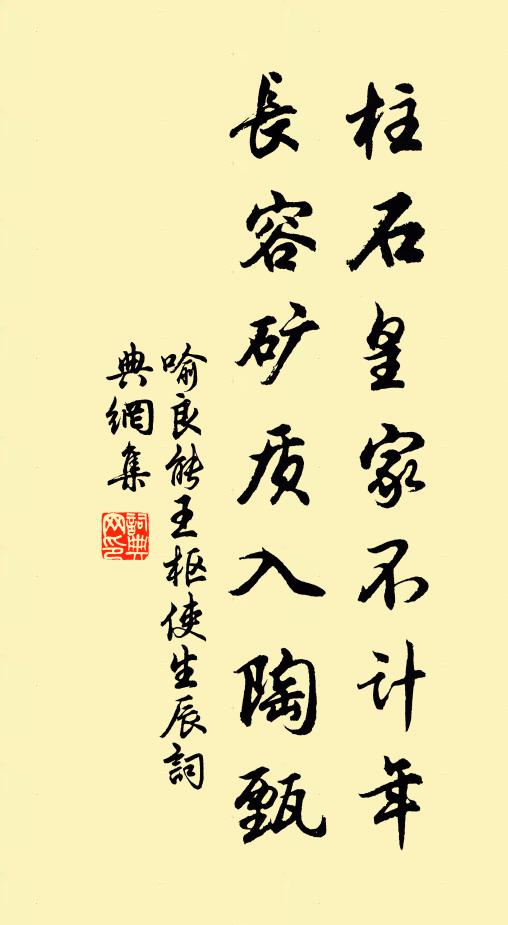 柱石皇家不计年
長容矿质入陶甄
喻良能王枢使生辰詞
典網集
詞典网印